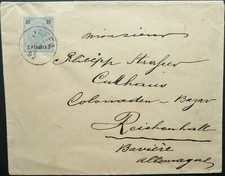 Monsieur
Philipp Strasser
Culhaus
Colonaden-Bazar
Reichenhall
Bavière
Allemagne